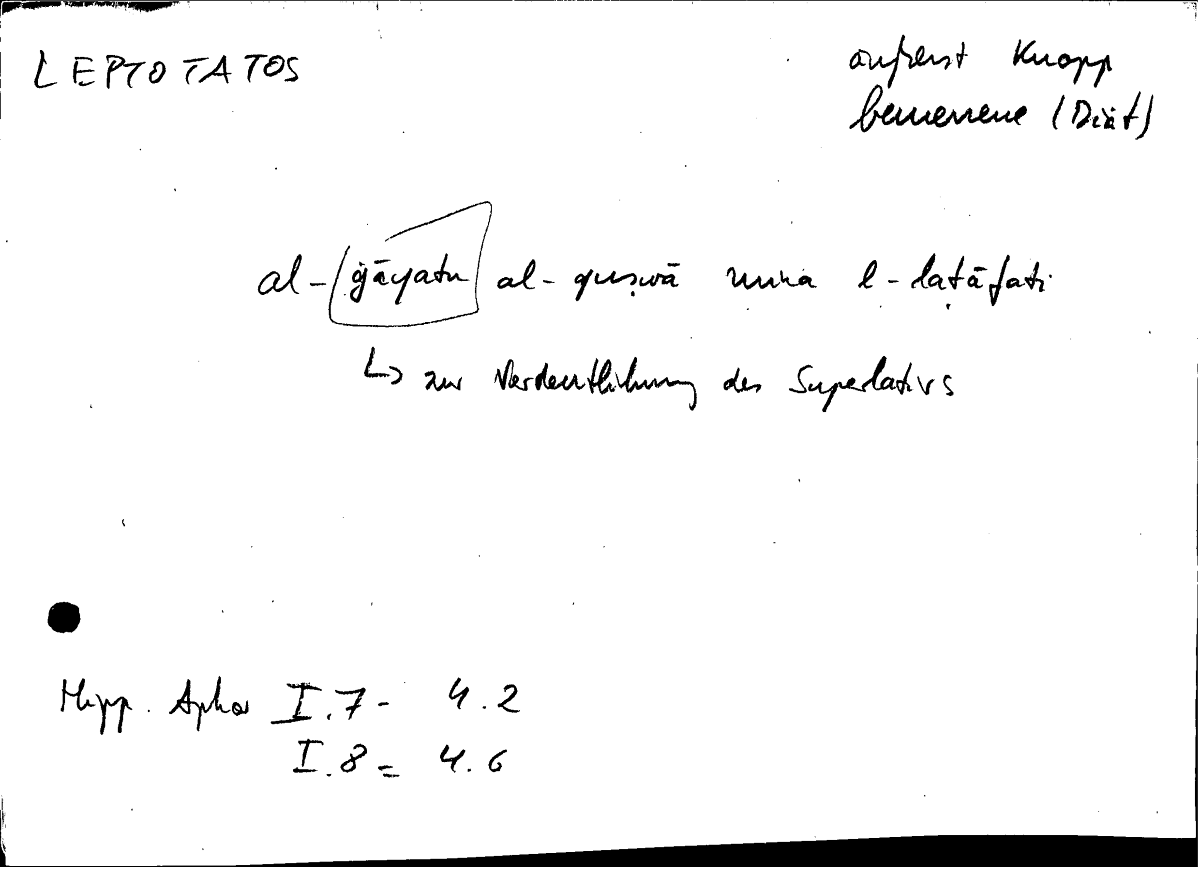 LEPTOTATOS
äußerst knapp
bemessene (Diät)
al-ġāyatu al-quṣwā mina l-laṭāfati
↳ zur Verdeutlichung des Superlativs
Hipp. Aphor I.7 = 4.2
I.8 = 4.6